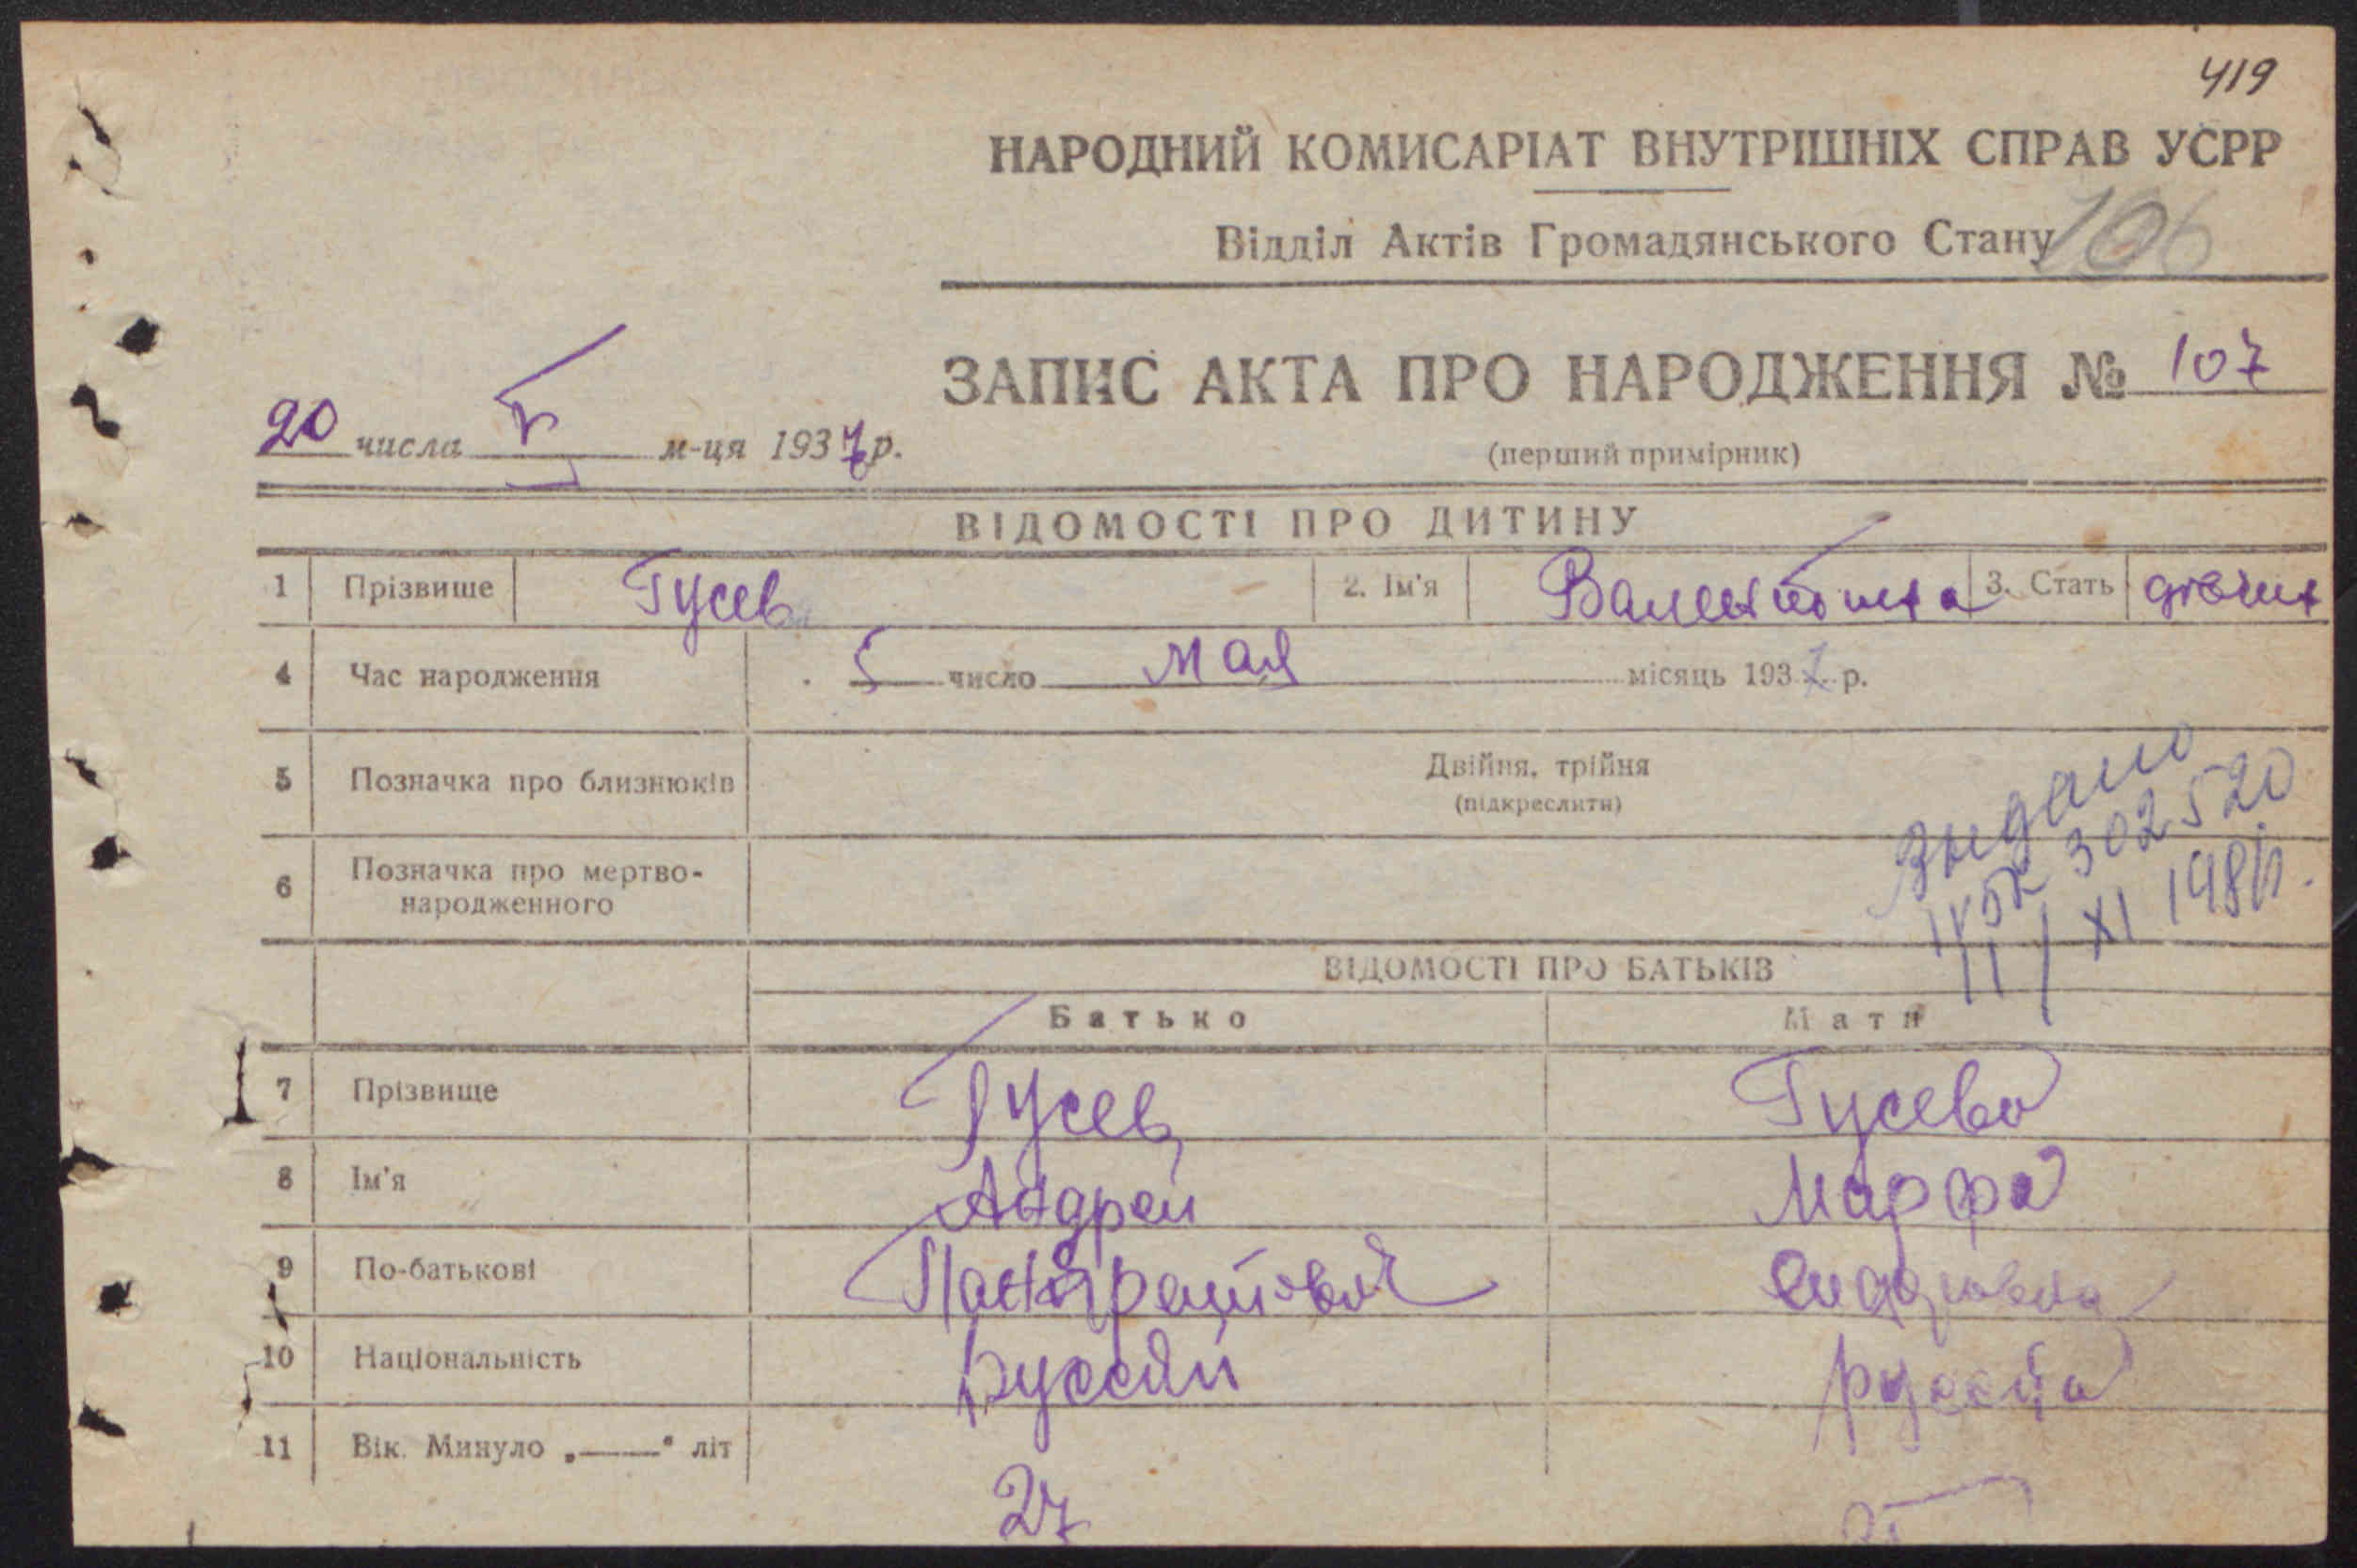 419
НАРОДНИЙ КОМИСАРІАТ ВНУТРІШНІХ СПРАВ УСРР
Відділ Актів Громадянського Стану 106
ЗАПИС АКТА ПРО НАРОДЖЕННЯ № 107
20 числа V м-ця 1937 р.
(перший примірник)
ВІДОМОСТІ ПРО ДИТИНУ
1 Прізвище Гусев 2. Ім'я Валентина 3. Стать
4 Час народження 5 число мая місяць 1937 р.
5 Позначка про близнюків Двійня, трійня
(підкреслити)
6 Позначка про мертво-
народженного
302520
XI
ВІДОМОСТІ ПРО БАТЬКІВ
Батько Мати
7 Прізвище Гусев Гусева
8 Ім'я Андрей Марфа
9 По-батькові
10 Національність
11 Вік. Минуло „——" літ
27